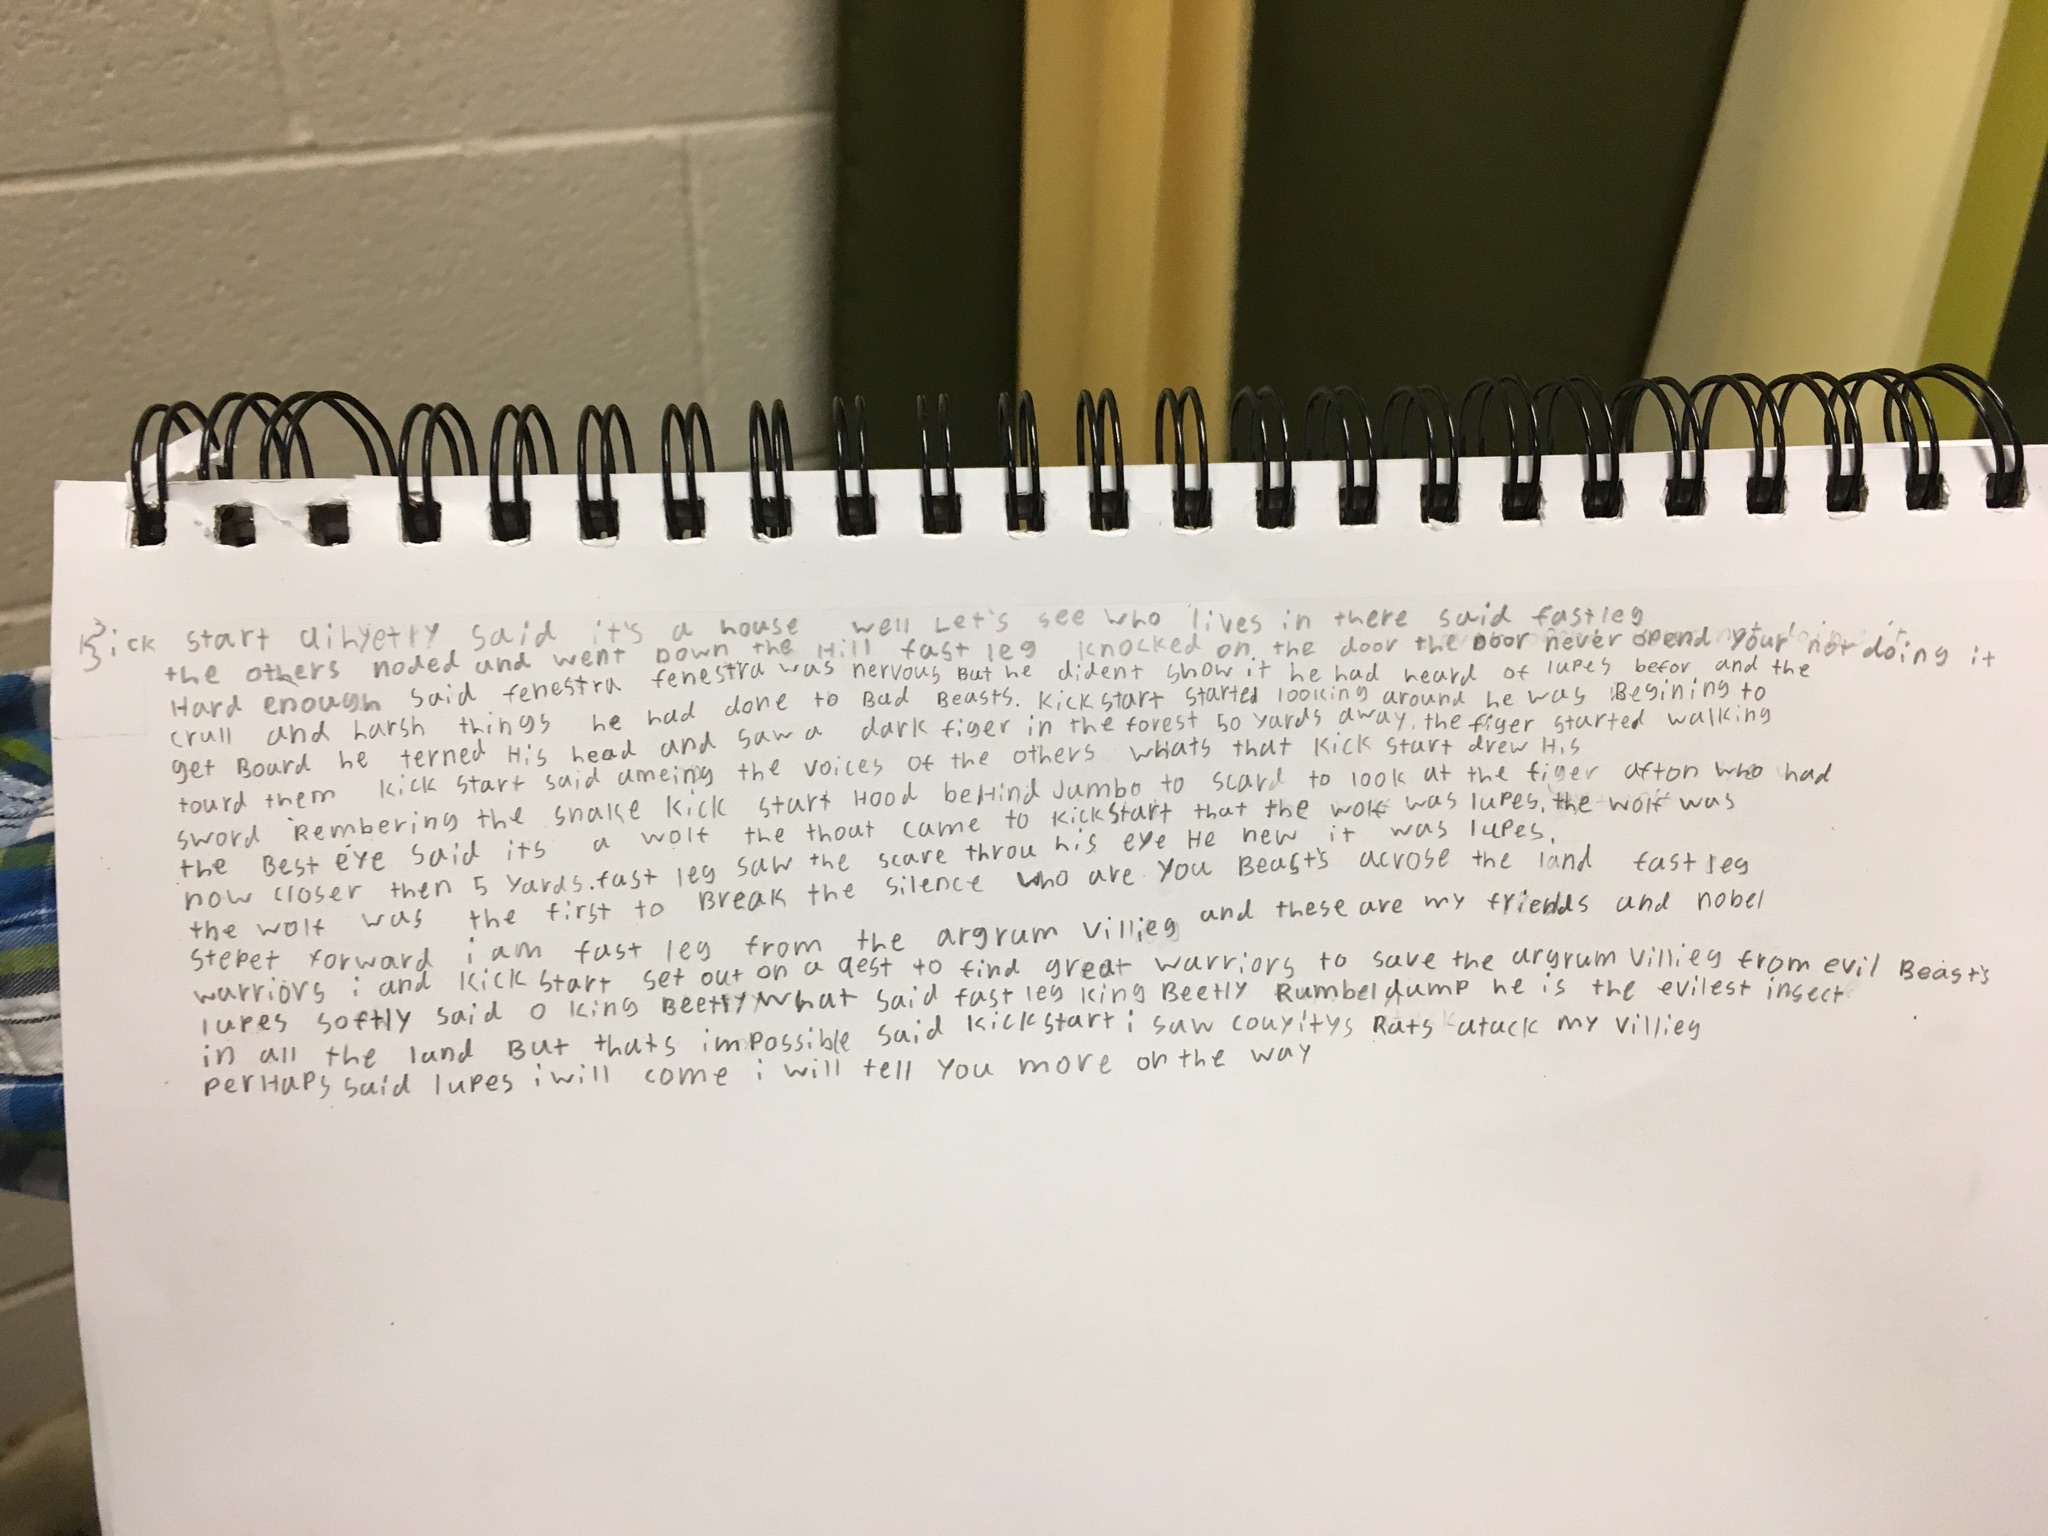 Kick start qihyetly said it's a house well Let's see who lives in there said fastleg
the others noded and went Down the Hill fast leg knocked on the door the Door never opend your not doing it
Hard enough said fenestra fenestra was nervous But he dident show it he had heard of lupes befor and the
crull and harsh things he had done to Bad Beasts. Kickstart started looking around he was Begining to
get Board he terned His head and saw a dark figer in the forest 50 yards away. the figer started walking
tourd them Kick start said ameing the voices of the others whats that Kick start drew His
sword Rembering the snake Kick start Hood beHind Jumbo to scard to look at the figer afton who had
the Best eye said its a wolf the thout came to Kickstart that the wolf was lupes. the wolf was
now closer then 5 yards. fast leg saw the scare throu his eye He new it was lupes.
the wolf was the first to Break the silence who are you Beasts acrose the land fast leg
stepet forward i am fast leg from the argrum villieg and these are my friends and nobel
warriors i and Kick start set out on a qest to find great warriors to save the argrum villieg from evil Beasts
lupes softly said o king Beetly what said fast leg king Beetly Rumbeldump he is the evilest insect
in all the land But thats impossible said Kickstart i saw couyitys Rats atack my villieg
perHaps said lupes i will come i will tell you more on the way